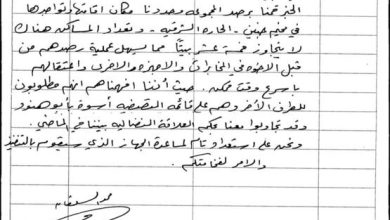 قمنا برصد المجموعة وحددنا مكان اقامتها وتواجدها
في مخيم جنين - الحارة الشرقية - وتعداد المساكن هناك
لا يتجاوز خمسة عشر بيتاً مما يسهل عملية رصدهم من
قبل الأخوة في المخابرات والاجهزة والاخرى واعتقالهم
باسرع وقت ممكن. حيث أننا افهمناهم انهم مطلوبون
للطرف الآخر وهم على قائمة التصفية أسوة بأبو هنود
وقد تجاوبوا معنا بحكم العلاقة النضالية بيننا في الماضي
ونحن على استعداد تام لمساعدة الجهاز الذي سيقوم بالتنفيذ
والامر لفخامتكم.